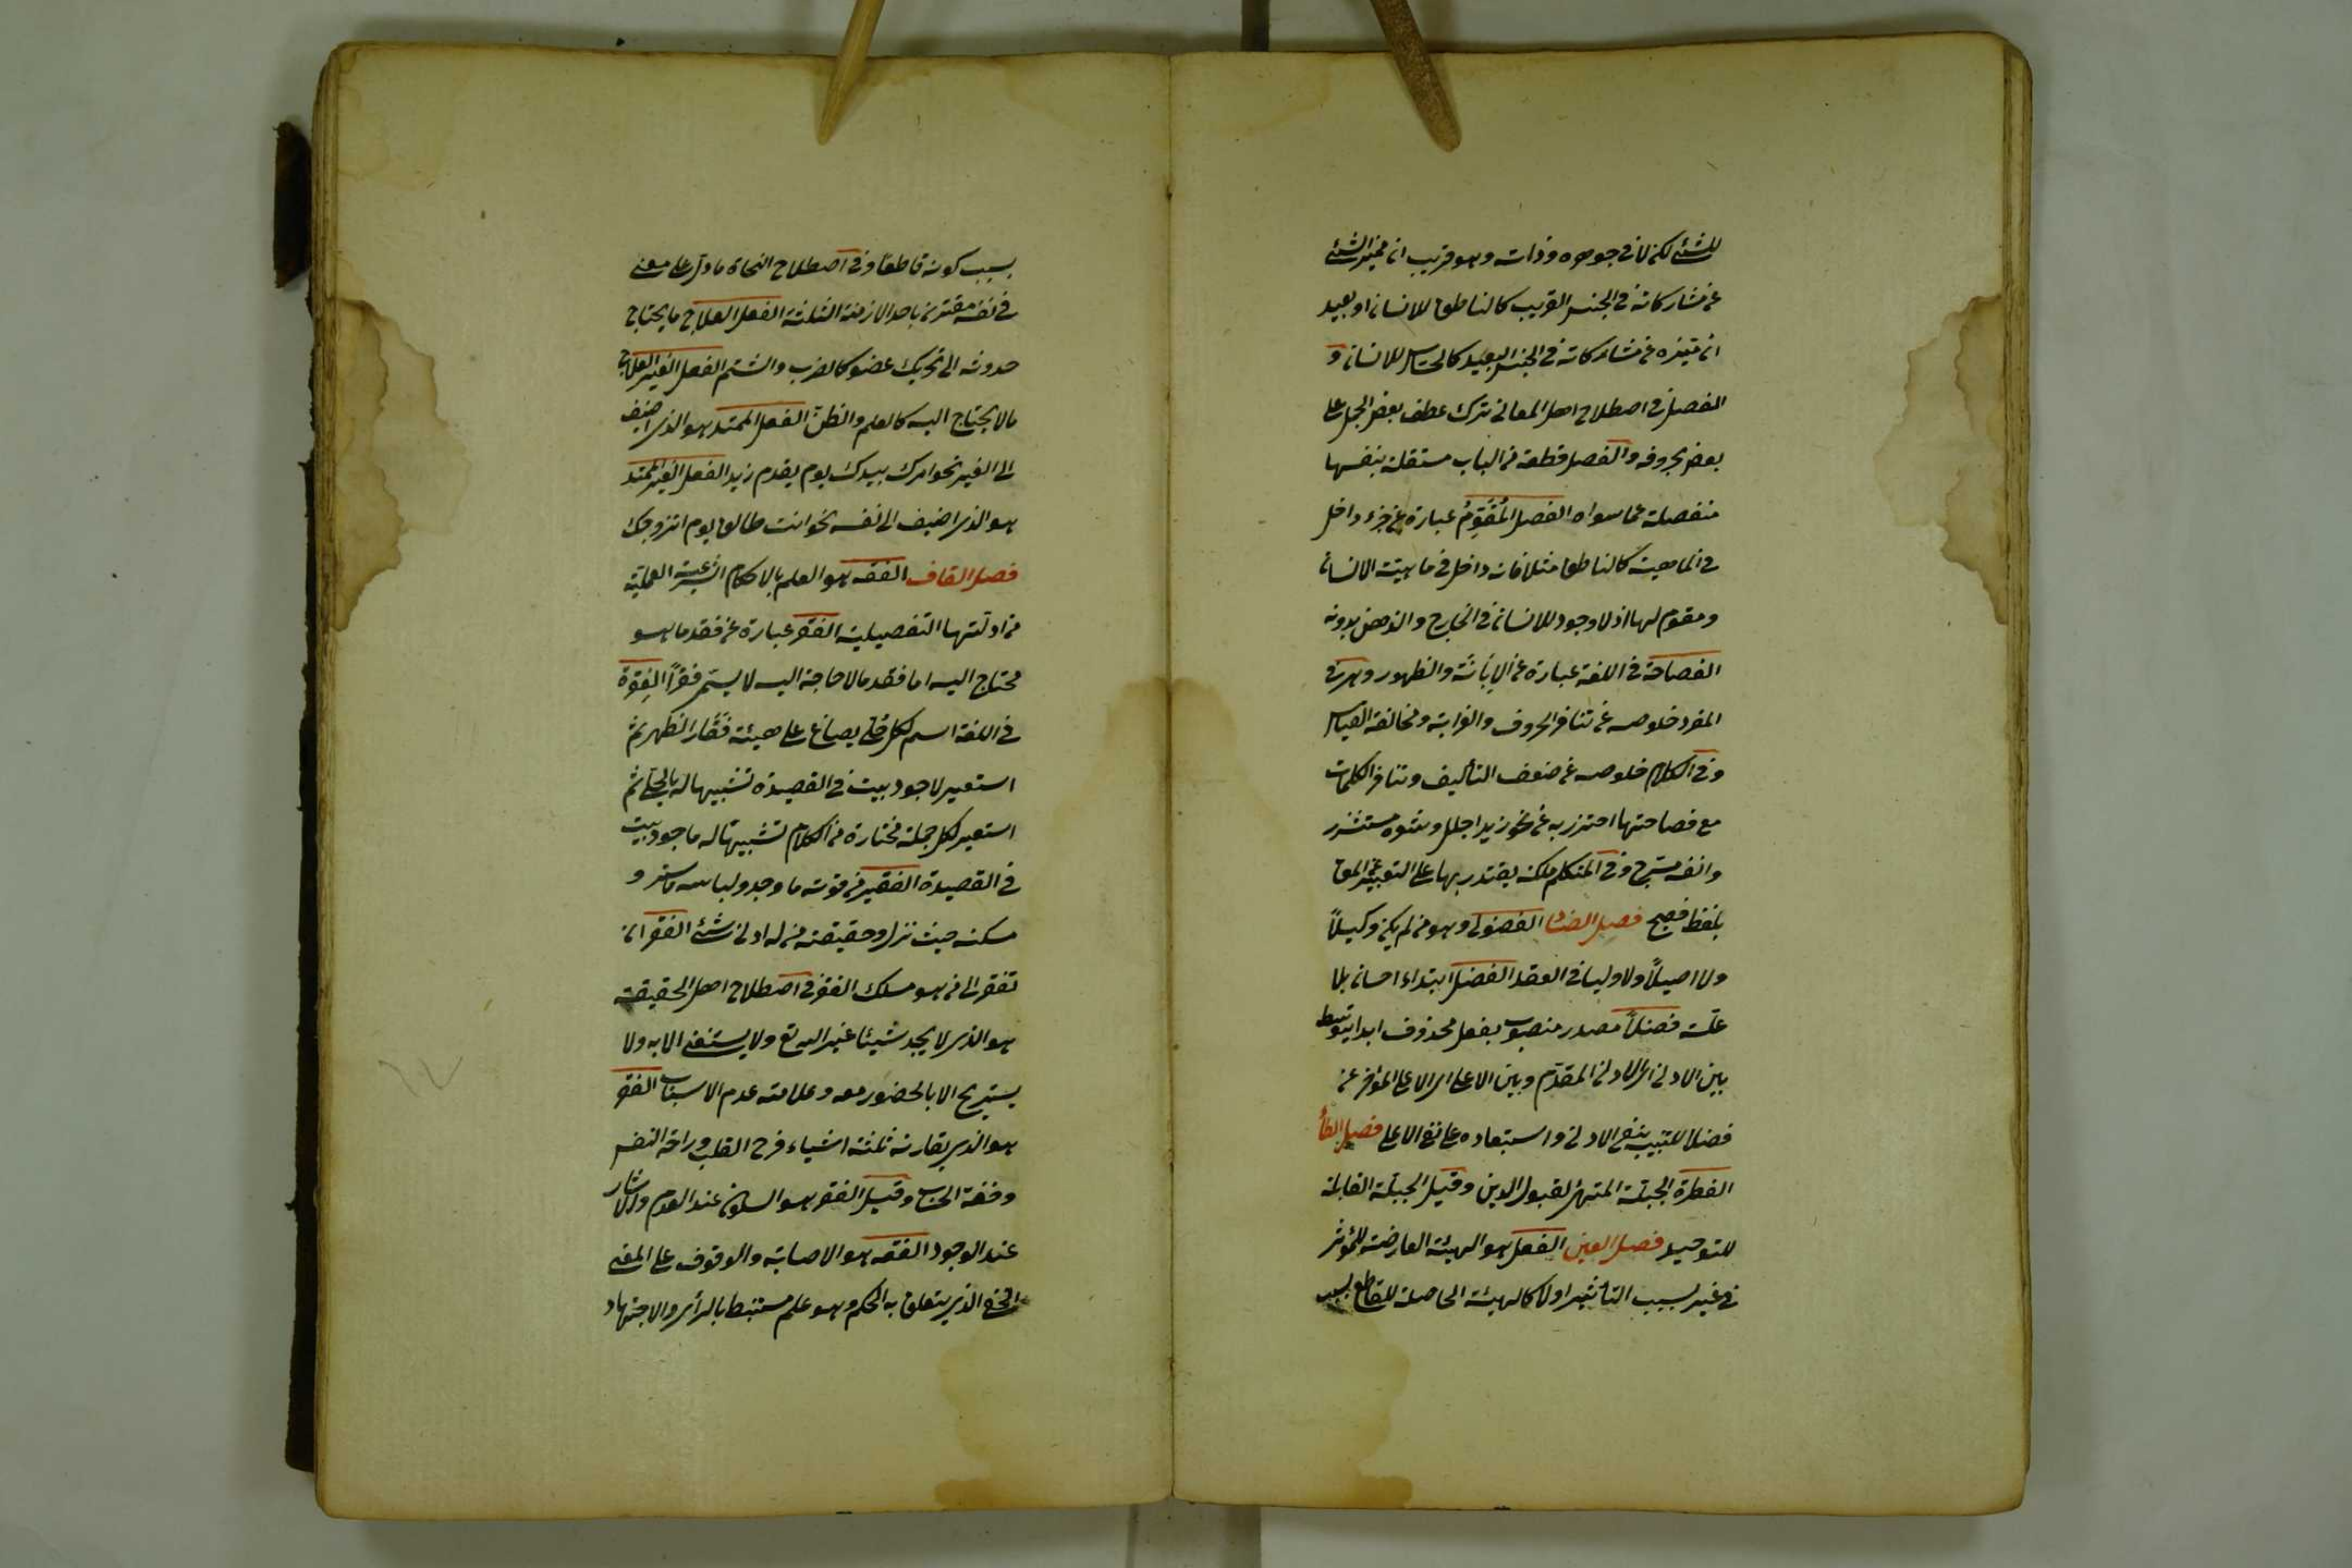 للشئ لكن لا فى جوهره وذاته وهو قريب ان ميز الشئ
عن مشاركاته فى الجنس القريب كالناطق للانسان او بعيد
ان ميّزه عن مشاركاته فى الجنس البعيد كالحساس للانسان و
الفصل فى اصطلاح اهل المعانى ترك عطف بعض الجمل على
بعض بحروفه والفصل قطعة من الباب مستقلة بنفسها
منفصلة عما سواه الفصل المُقَوِّمُ عبارة عن جزء داخل
فى الماهية كالناطق مثلا فانه داخل فى ماهية الانسان
ومقوم لها اذ لا وجود للانسان فى الخارج والذهن بدونه
الفصاحة فى اللغة عبارة عن الاِبانة والظهور وهى فى
المفرد خلوصه عن تنافر الحروف والغرابة ومخالفة القياس
وفى الكلام خلوصه عن ضعف التأليف وتنافر الكلمات
مع فصاحتها احترز به عن نحو زيد اجلل وشعره مستشزر
وانفه مسرج وفى المتكلم ملكة يقتدر بها على التعبير عن المق
بلفظ فصيح فصل الضاد الفضولى وهو من لم يكن وكيلاً
ولا اصيلاً ولا وليا فى العقد الفضل ابتداء احسان بلا
علّة فضلاً مصدر منصوب بفعل محذوف ابدا يتوسط
بين الادنى اى الادنى المقدّم وبين الاعلى اى الاعلى المؤخر عن
فضلا للتنبيه بنفى الادنى واستبعاده على نفى الاعلى فصل الطأ
الفطرة الجبلّة المتهئ لقبول الدين وقيل الجبلّة القابلة
للتوحيد فصل العين الفعل هو الهيئة العارضة للمؤثر
فى غيره بسبب التأثير اولا كالهيئة الحاصلة للقاطع بسبب
بسبب كونه قاطعًا وفى اصطلاح النحاة ما دلّ على معنى
فى نفسه مقترن باحد الازمنة الثلثة الفعل العلاج ما يحتاج
حدوثه الى تحريك عضو كالضرب والشتم الفعل الغير العلاج
مالا يحتاج اليه كالعلم والظنّ الفعل الممتد هو الذى اضيف
الى الغير نحو امرك بيدك يوم يقدم زيد الفعل الغير الممتد
هو الذى اضيف الى نفسه نحو انت طالق يوم اتزوجك
فصل القاف الفقه هو العلم بالاحكام الشرعية العمليّة
من ادلّتها التفصيلية الفقر عبارة عن فقد ما هو
محتاج اليه اما فقد مالا حاجة اليه لا يسمى فقرًا الفِقرة
فى اللغة اسم لكل حلى يصاغ على هيئة فَقَار الظهر ثم
استعير لاجود بيت فى القصيدة تشبيها له بالحلى ثم
استعير لكل جملة مختارة من الكلام تشبيهًا له باجود بيت
فى القصيدة الفقير من قوته ما وجد ولباسه ما ستر و
مسكنه حيث نزل وحقيقته من له ادنى شئ الفقر ان
تفتقر الى من هو مسلك الفقر فى اصطلاح اهل الحقيقة
هو الذى لا يجد شيئا غير الله تع ولا يستغنى الا به ولا
يستريح الا بالحضور معه وعلامته عدم الاسباب الفقر
هو الذى يقارنه ثلثة اشياء فرح القلب وراحة النفس
وخفة الحساب وقيل الفقر هو السكون عند العدم والايثار
عند الوجود الفقه هو الاصابة والوقوف على المعنى
الخفى الذى يتعلق به الحكم وهو علم مستنبط بالرأى والاجتهاد